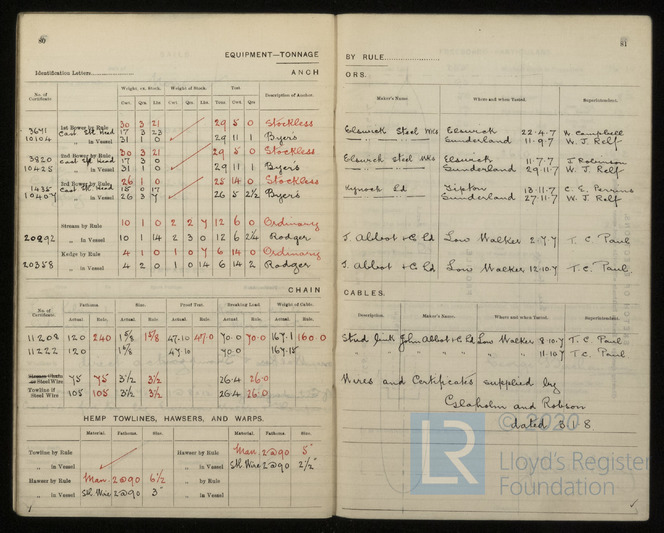 80
EQUIPMENT—TONNAGE
Identification Letters
ANCH
No. of Certificate.
Weight, ex. Stock.
Weight of Stock.
Test.
Description of Anchor.
Cwt. Qrs. Lbs. Cwt. Qrs. Lbs. Tons Cwt. Qrs.
1st Bower by Rule 30 3 21 29 5 0 Stockless
3641 Cast Stl. Head 17 3 23
10104 „ in Vessel 31 1 0 29 11 1 Byers
2nd Bower by Rule 30 3 21 29 5 0 Stockless
3820 Cast Stl. Head 17 3 0
10425 „ in Vessel 31 1 0 29 11 1 Byers
3rd Bower by Rule 26 1 0 25 14 0 Stockless
1435 Cast Stl. Head 15 0 17
10407 „ in Vessel 26 3 7 26 5 2½ Byers
Stream by Rule 10 1 0 2 2 7 12 6 0 Ordinary
20892 „ in Vessel 10 1 14 2 3 0 12 6 2¼ Rodger
Kedge by Rule 4 1 0 1 0 7 6 14 0 Ordinary
20358 „ in Vessel 4 2 0 1 0 14 6 14 2 Rodger
CHAIN
No. of Certificate.
Fathoms. Size. Proof Test. Breaking Load. Weight of Cable.
Actual. Rule. Actual. Rule. Actual. Rule. Actual. Rule. Actual. Rule.
11208 120 240 1⅝ 1⅝ 47·10 47·0 70·0 70·0 167·1 160·0
11222 120 1⅝ 47·10 70·0 167·15
Steel Wire 75 75 3½ 3½ 26·4 26·0
Towline if Steel Wire 105 105 3½ 3½ 26·4 26·0
HEMP TOWLINES, HAWSERS, AND WARPS.
Material. Fathoms. Size. Material. Fathoms. Size.
Towline by Rule Hawser by Rule Man. 2@90 5"
„ in Vessel „ in Vessel Stl. Wire 2@90 2½"
Hawser by Rule Man. 2@90 6½ „ by Rule
„ in Vessel Stl. Wire 2@90 3" „ in Vessel
81
BY RULE
ORS.
Maker's Name. Where and when Tested. Superintendent.
Elswick Steel Wks Elswick 22·4·7 W Campbell
„ „ Sunderland 11·9·7 W. J. Relf
Elswick Steel Wks Elswick 11·7·7 J Robinson
„ „ Sunderland 29·11·7 W. J. Relf
Kynock Ld Tipton 18·11·7 C. E. Perrins
Sunderland 27·11·7 W. J. Relf
J. Abbot & Co Ld Low Walker 2·7·7 T. C. Paul
J. Abbot & Co Ld Low Walker 12·10·7 T. C. Paul
CABLES.
Description. Maker's Name. Where and when Tested. Superintendent.
Stud link John Abbot & Co Ld Low Walker 8·10·7 T. C. Paul
„ „ „ „ „ „ 11·10·7 T. C. Paul
Wires and Certificates supplied by
Glaholm and Robson
dated 3·1·8
© 2020
LR
Lloyd's Register
Foundation